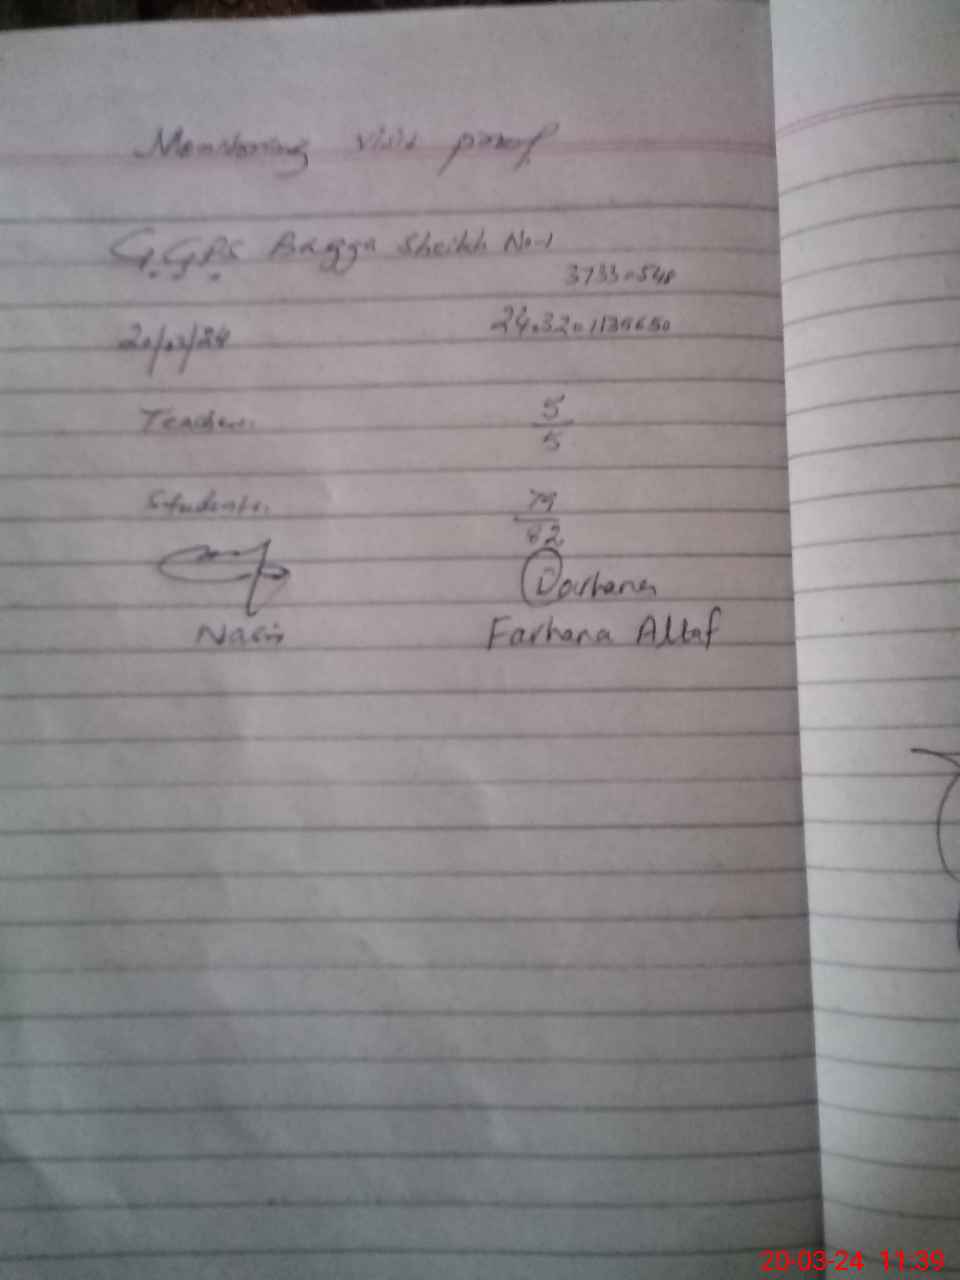 Monitoring visit proof
G.G.P.S Bagga Sheikh No-1
37330548
20/03/24
Teachers 5/5
Students. 79/82
Nasir Farhana Altaf
20-03-24 11:39